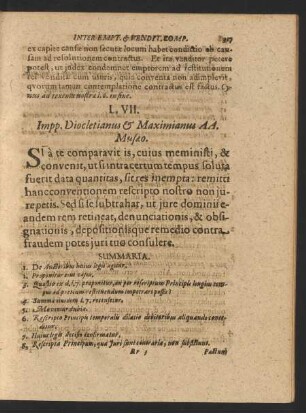 INTER EMPT. & VENDIT. COMP. 317
ex capite causæ non secutæ locum habet condictio ob cau-
sam ad resolutionem contractus. Et ita venditor petere
potest, ut judex condemnet emptorem ad restitutionem
rei venditæ cum usuris, quia conventa non adimplevit,
quorum tamen contemplatione contractus est factus.
L. VII.
Impp. Diocletianus & Maximianus AA.
Musæo.
Si à te comparavit is, cuius meministi, &
convenit, ut si intra certum tempus soluta
fuerit data quantitas, sit res inempta: remitti
hanc conventionem rescripto nostro non ju-
re petis. Sed si se subtrahat, ut jure dominii e-
andem rem retineat, denunciationis, & obsi-
gnationis, depositionisque remedio contra
fraudem potes juri tuo consulere.
SUMMARIA.
1. De Authoribus hujus legis agitur.
2. Proponitur ejus casus.
3. Quæstio ex d. l. 7. proponitur, an per rescriptum Principis longius tem-
pus ad pretium restituendum impetrari possit?
4. Summa huius l. 7. recensetur.
5. Moratoriis
6. Rescripto Principis temporalis dilatio debitoribus aliquando conce-
ditur.
7. Huius legis decisio confirmatur.
8. Rescripta Principum, quæ Juri contraria, non subsistunt.
Rr 3 Pactum